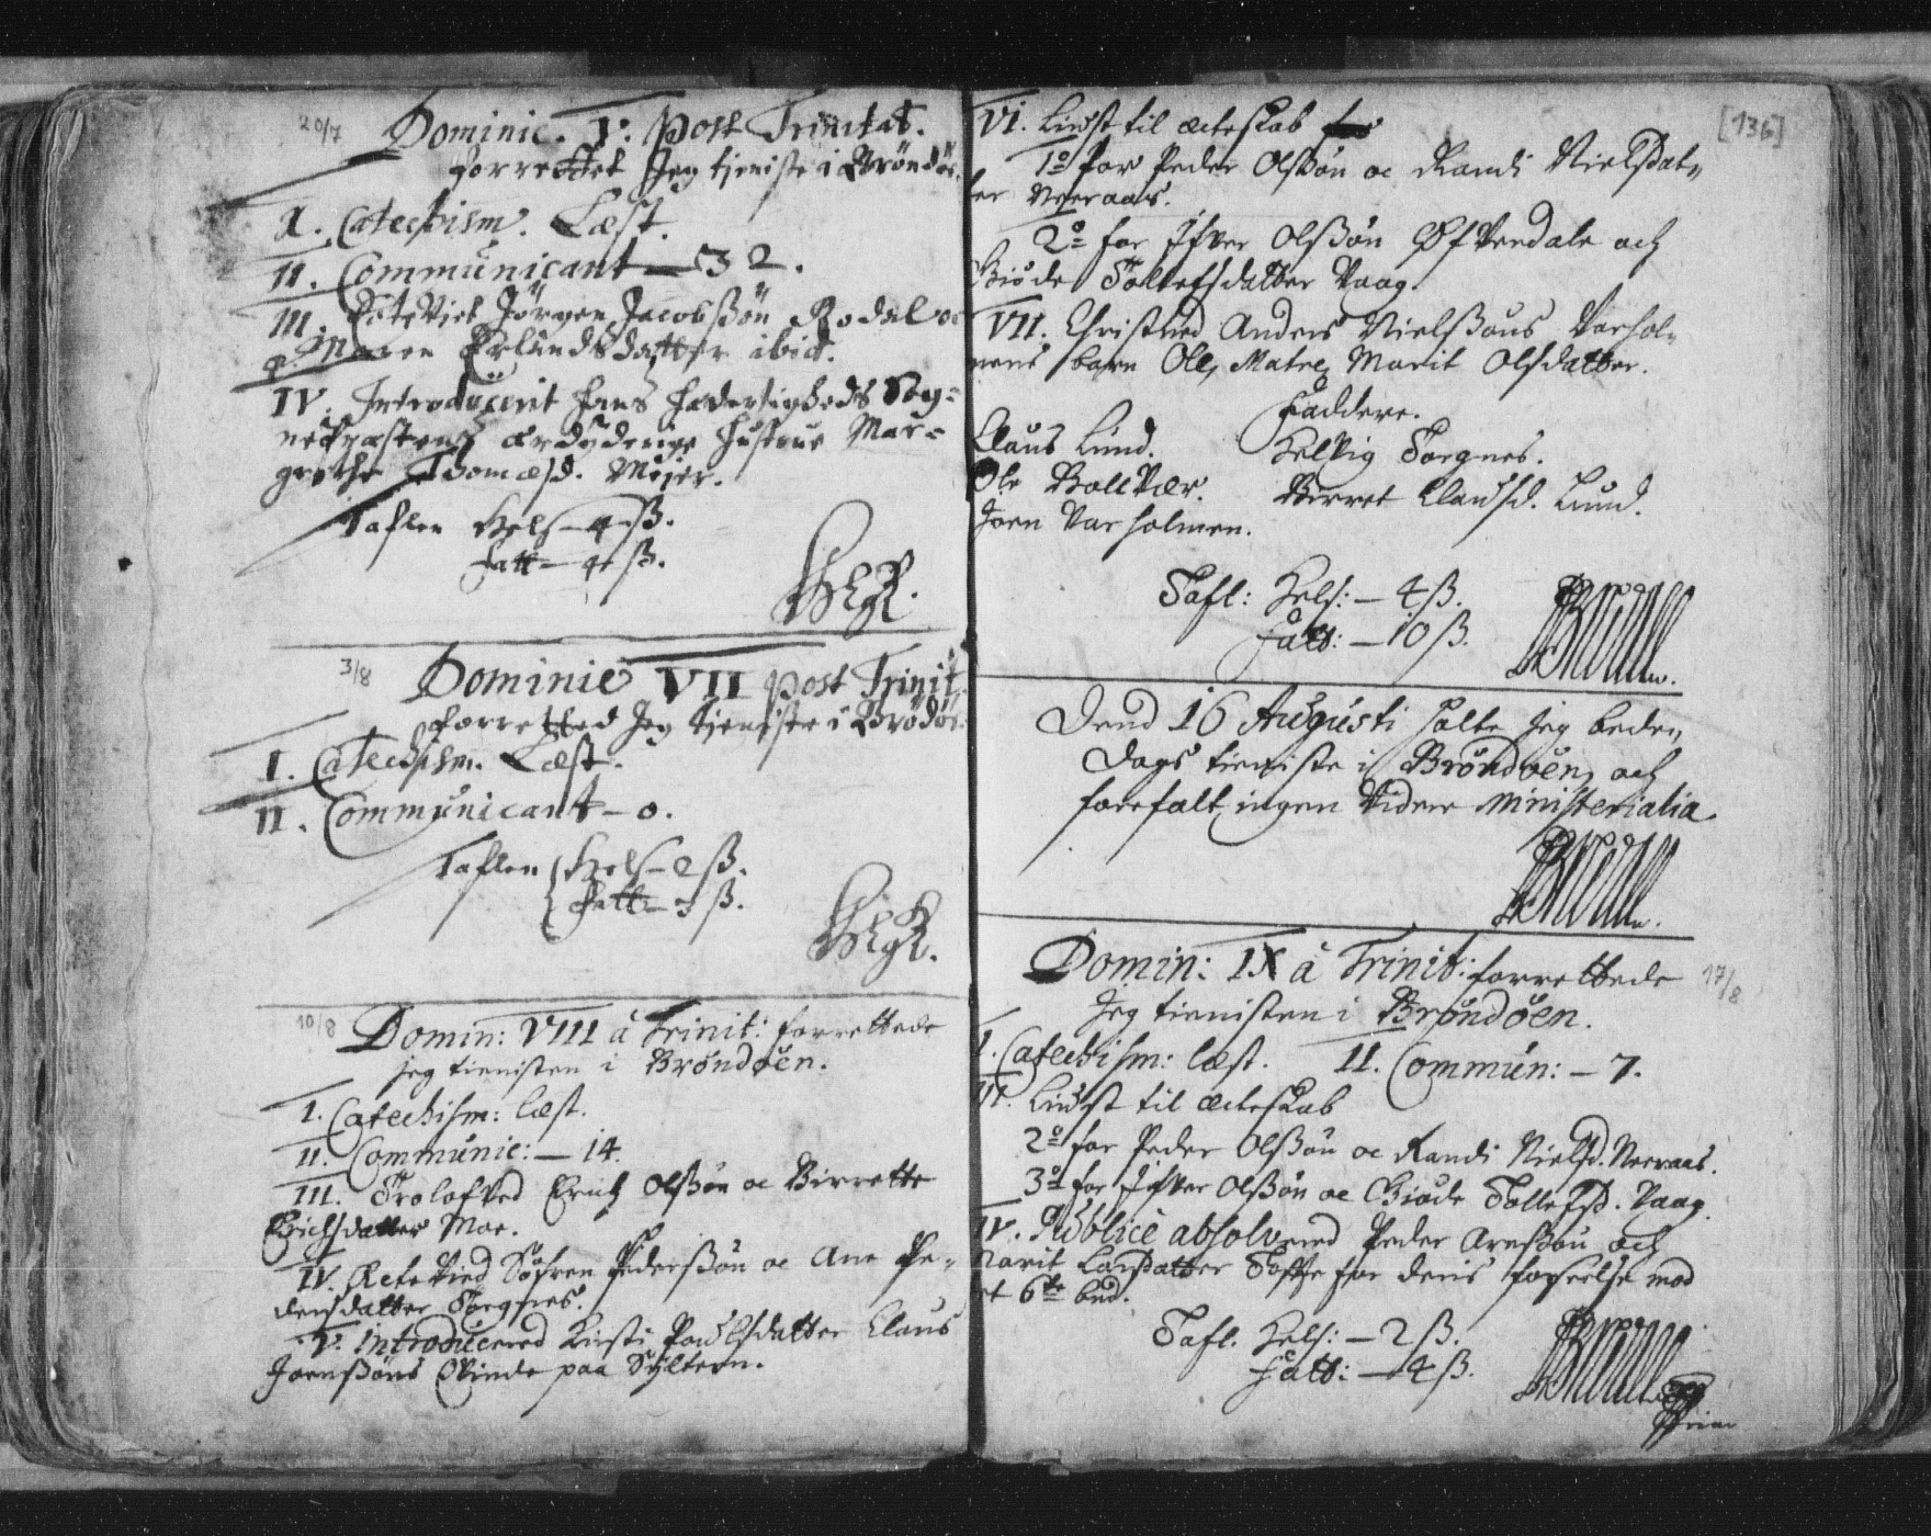 20/7 Dominic. V. Post Trinitat.
forrettet Jeg tjeniste i Bröndöe.
I. Catechism. Læst.
II. Communicant — 32.
III. Jörgen Jacobßön Rodal oc
Maren Erlandsdatter ibid.
IV. Introducerit hans Sog-
ærdyderige Hustrue Mar-
grethe Thomæsd. Meier.
Taflen Hels — 4 ß.
Fatt — 4 ß.
3/8 Dominic VII post Trinit.
forretted Jeg tjeniste i Brödöe.
I. Catechism. Læst.
II. Communicant — 0.
Taflen Hels — 2 ß.
Fatt — 3 ß.
10/8 Domin: VIII à Trinit: forrettede
jeg tienisten i Bröndöen.
I. Catechism: læst.
II. Communic: — 14.
III. Trolofved Erich Olßön oc Birrette
Erichsdatter Moe.
IV. Ecte Vied Söfren Pederßön oc Ane Pe-
dersdatter Torgnes.
V. introducered Kirsti Poulsdatter Claus
Joenßöns Qvinde paa Sÿlteren.
[136]
VI. Liust til ecteskab
1º for Peder Olßön oc Randi Nielsdat-
ter Neeraas.
2º for Ifver Olßön Øfverdale och
Giöde Tollefsdatter Vaag.
VII. Christned Anders Nielßöns Varhol-
mens barn Ole, Matre Marit Olsdatter.
Faddere.
Claus Lund. Helvig Torgnes.
Ole Bollvær. Birret Clausd. Lund.
Joen Varholmen.
Tafl: Hels: — 4 ß.
Fatt: — 10 ß.
Dend 16 Augusti holte jeg bede-
dags tieniste i Bröndöen, och
forefalt ingen videre ministerialia
Domin: IX à Trinit: forrettede 17/8
Jeg tienisten i Bröndöen.
I. Catechism: læst. II. Commun: — 7.
III. Liust til ecteskab
2º for Peder Olßön oc Randi Nielsd. Neeraas.
3º for Ifver Olßön oc Giöde Tollefsd. Vaag.
IV. Publicè absolvered Peder Arnßön och
Marit Larsdatter Tofte for deris forseelse mod
et 6te bud.
Tafl. Hels: — 2 ß.
Fatt: — 4 ß.